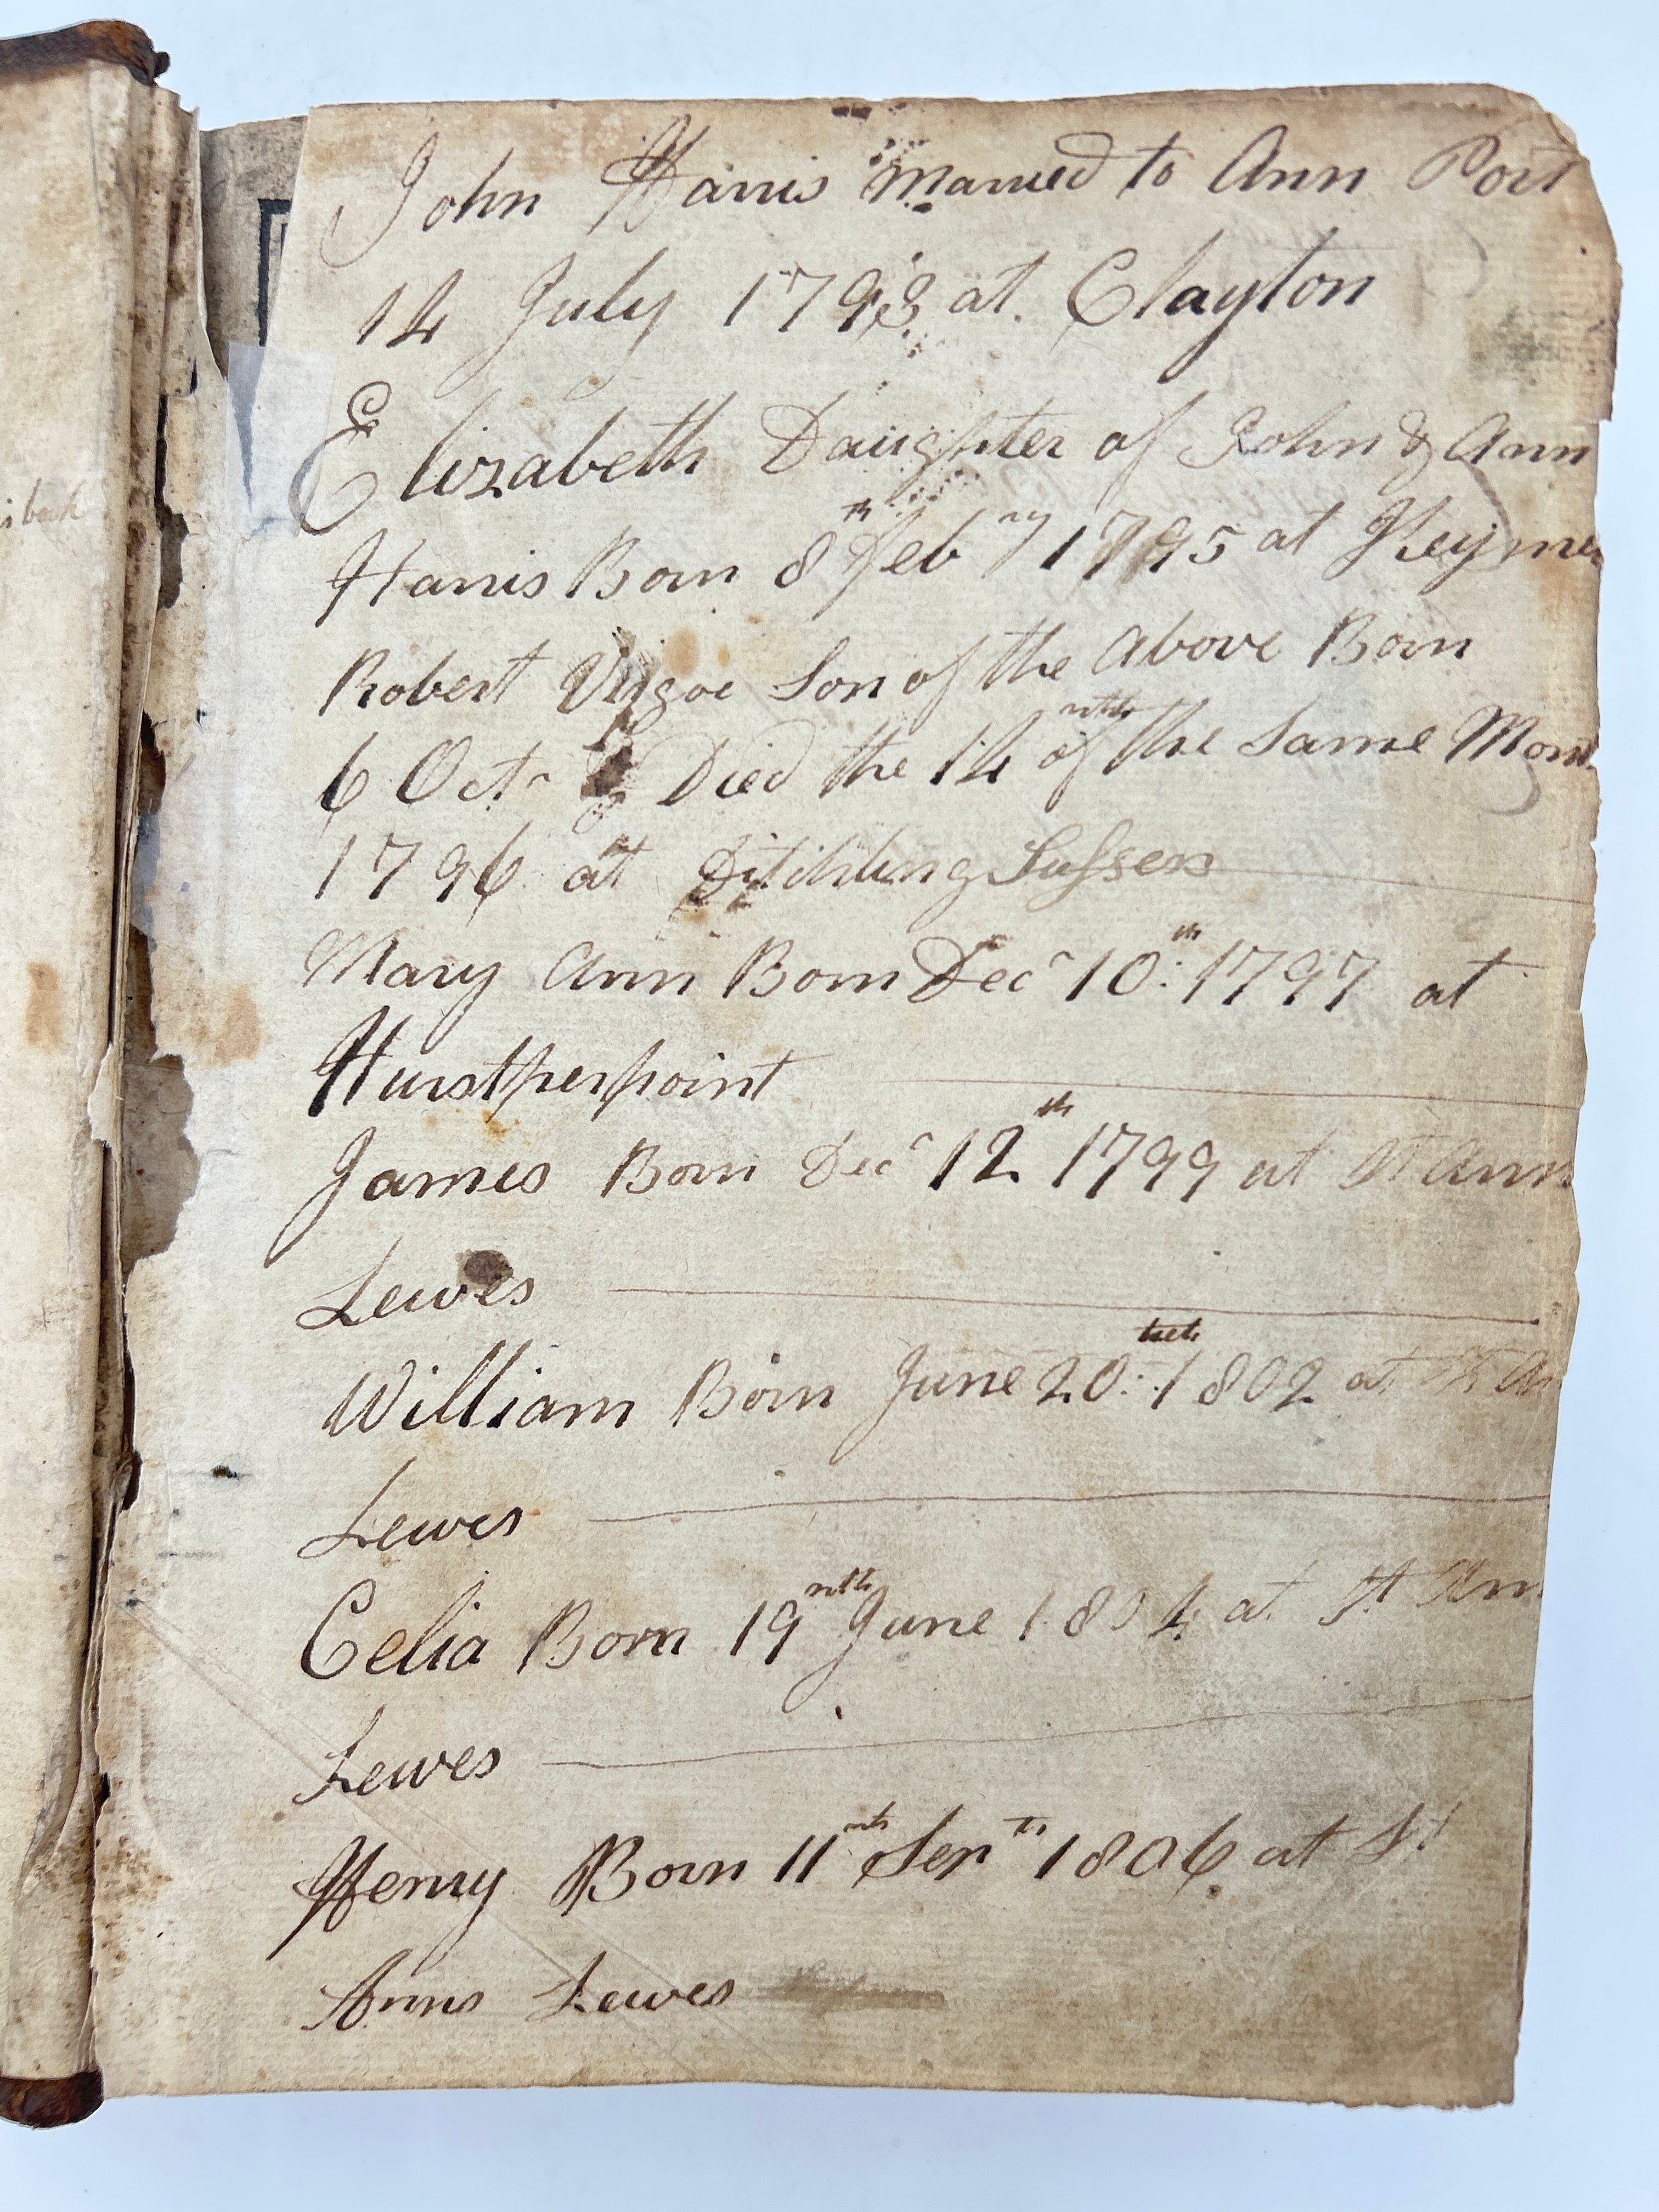 is book
John Harris Married to Ann Port
14 July 1793 at Clayton
Elizabeth Daughter of John & Ann
Harris Born 8th Febry 1795 at Keymer
Robert Son of the above Born
6 Octr Died the 14 of the Same Mon
1796 at Ditchling Sussex
Mary Ann Born Decr 10th 1797 at
Hurstperpoint
James Born Decr 12th 1799 at St Ann
Lewes
William Born June 20 1802 at St An
Lewes
Celia Born 19 June 1804 at St Ann
Lewes
Henry Born 11 Sep 1806 at St
Anns Lewes